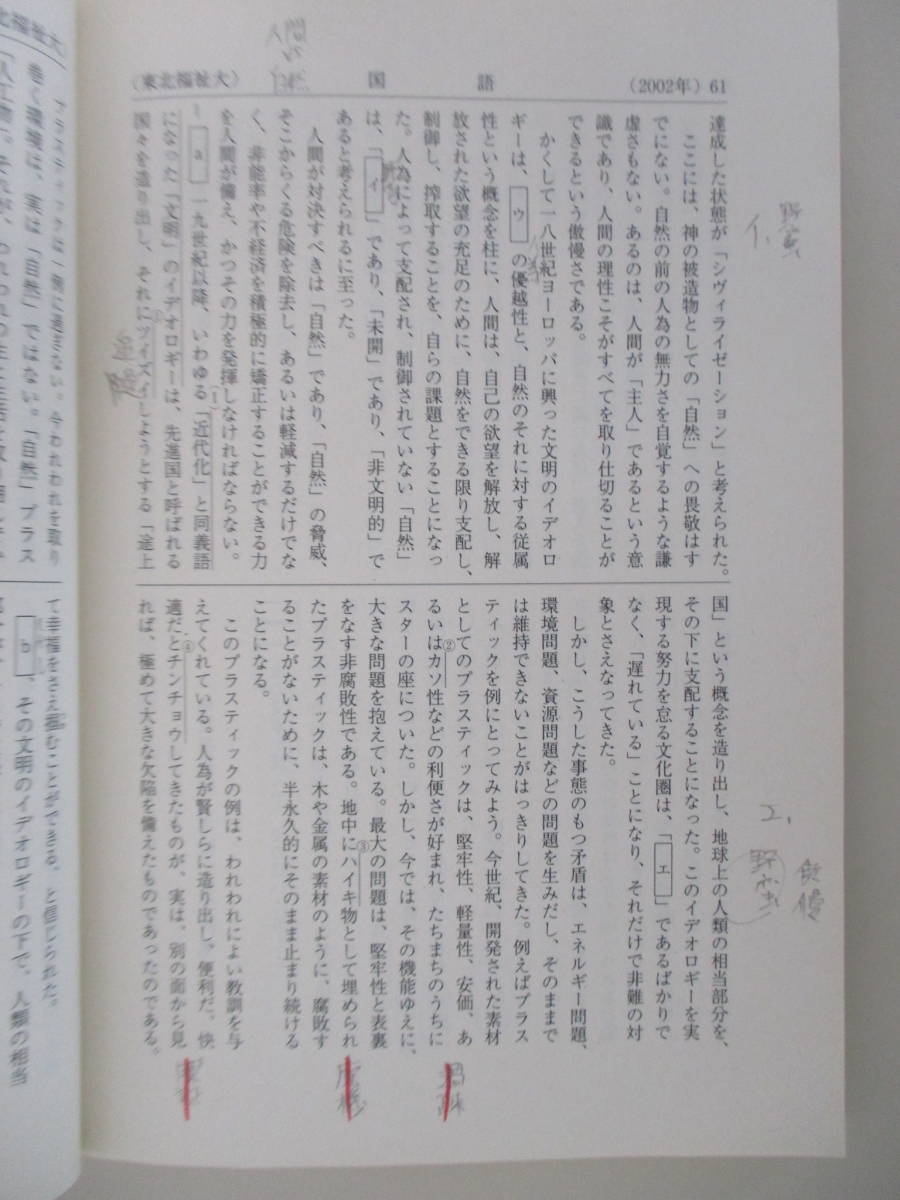 (東北福祉大)
国語
(2002年) 61
達成した状態が「シヴィライゼーション」と考えられた。
ここには、神の被造物としての「自然」への畏敬はす
でにない。自然の前の人為の無力さを自覚するような謙
虚さもない。あるのは、人間が「主人」であるという意
識であり、人間の理性こそがすべてを取り仕切ることが
できるという傲慢さである。
かくして一八世紀ヨーロッパに興った文明のイデオロ
ギーは、ウの優越性と、自然のそれに対する従属
性という概念を柱に、人間は、自己の欲望を解放し、解
放された欲望の充足のために、自然をできる限り支配し、
制御し、搾取することを、自らの課題とすることになっ
た。人為によって支配され、制御されていない「自然」
は、「イ」であり、「未開」であり、「非文明的」で
あると考えられるに至った。
人間が対決すべきは「自然」であり、「自然」の脅威、
そこからくる危険を除去し、あるいは軽減するだけでな
く、非能率や不経済を積極的に矯正することができる力
を人間が備え、かつその力を発揮しなければならない。
a 一九世紀以降、いわゆる「近代化」と同義語
になった「文明」のイデオロギーは、先進国と呼ばれる
国々を造り出し、それに①ツイズイしようとする「途上
国」という概念を造り出し、地球上の人類の相当部分を、
その下に支配することになった。このイデオロギーを実
現する努力を怠る文化圏は、「エ」であるばかりで
なく、「遅れている」ことになり、それだけで非難の対
象とさえなってきた。
しかし、こうした事態のもつ矛盾は、エネルギー問題、
環境問題、資源問題などの問題を生みだし、そのままで
は維持できないことがはっきりしてきた。例えばプラス
ティックを例にとってみよう。今世紀、開発された素材
としてのプラスティックは、堅牢性、軽量性、安価、あ
るいは②カソ性などの利便さが好まれ、たちまちのうちに
スターの座についた。しかし、今では、その機能ゆえに、
大きな問題を抱えている。最大の問題は、堅牢性と表裏
をなす非腐敗性である。地中に③ハイキ物として埋められ
たプラスティックは、木や金属の素材のように、腐敗す
ることがないために、半永久的にそのまま止まり続ける
ことになる。
このプラスティックの例は、われわれによい教訓を与
えてくれている。人為が賢しらに造り出し、便利だ、快
適だと④チンチョウしてきたものが、実は、別の面から見
れば、極めて大きな欠陥を備えたものであったのである。
プラスティックは一例に過ぎない。今われわれを取り
巻く環境は、実は「自然」ではない。「自然」プラス
て幸福をさえ掴むことができる、と信じられた。
b、その文明のイデオロギーの下で、人類の相当
人間
イ、野蛮
エ、
野蛮
廃棄